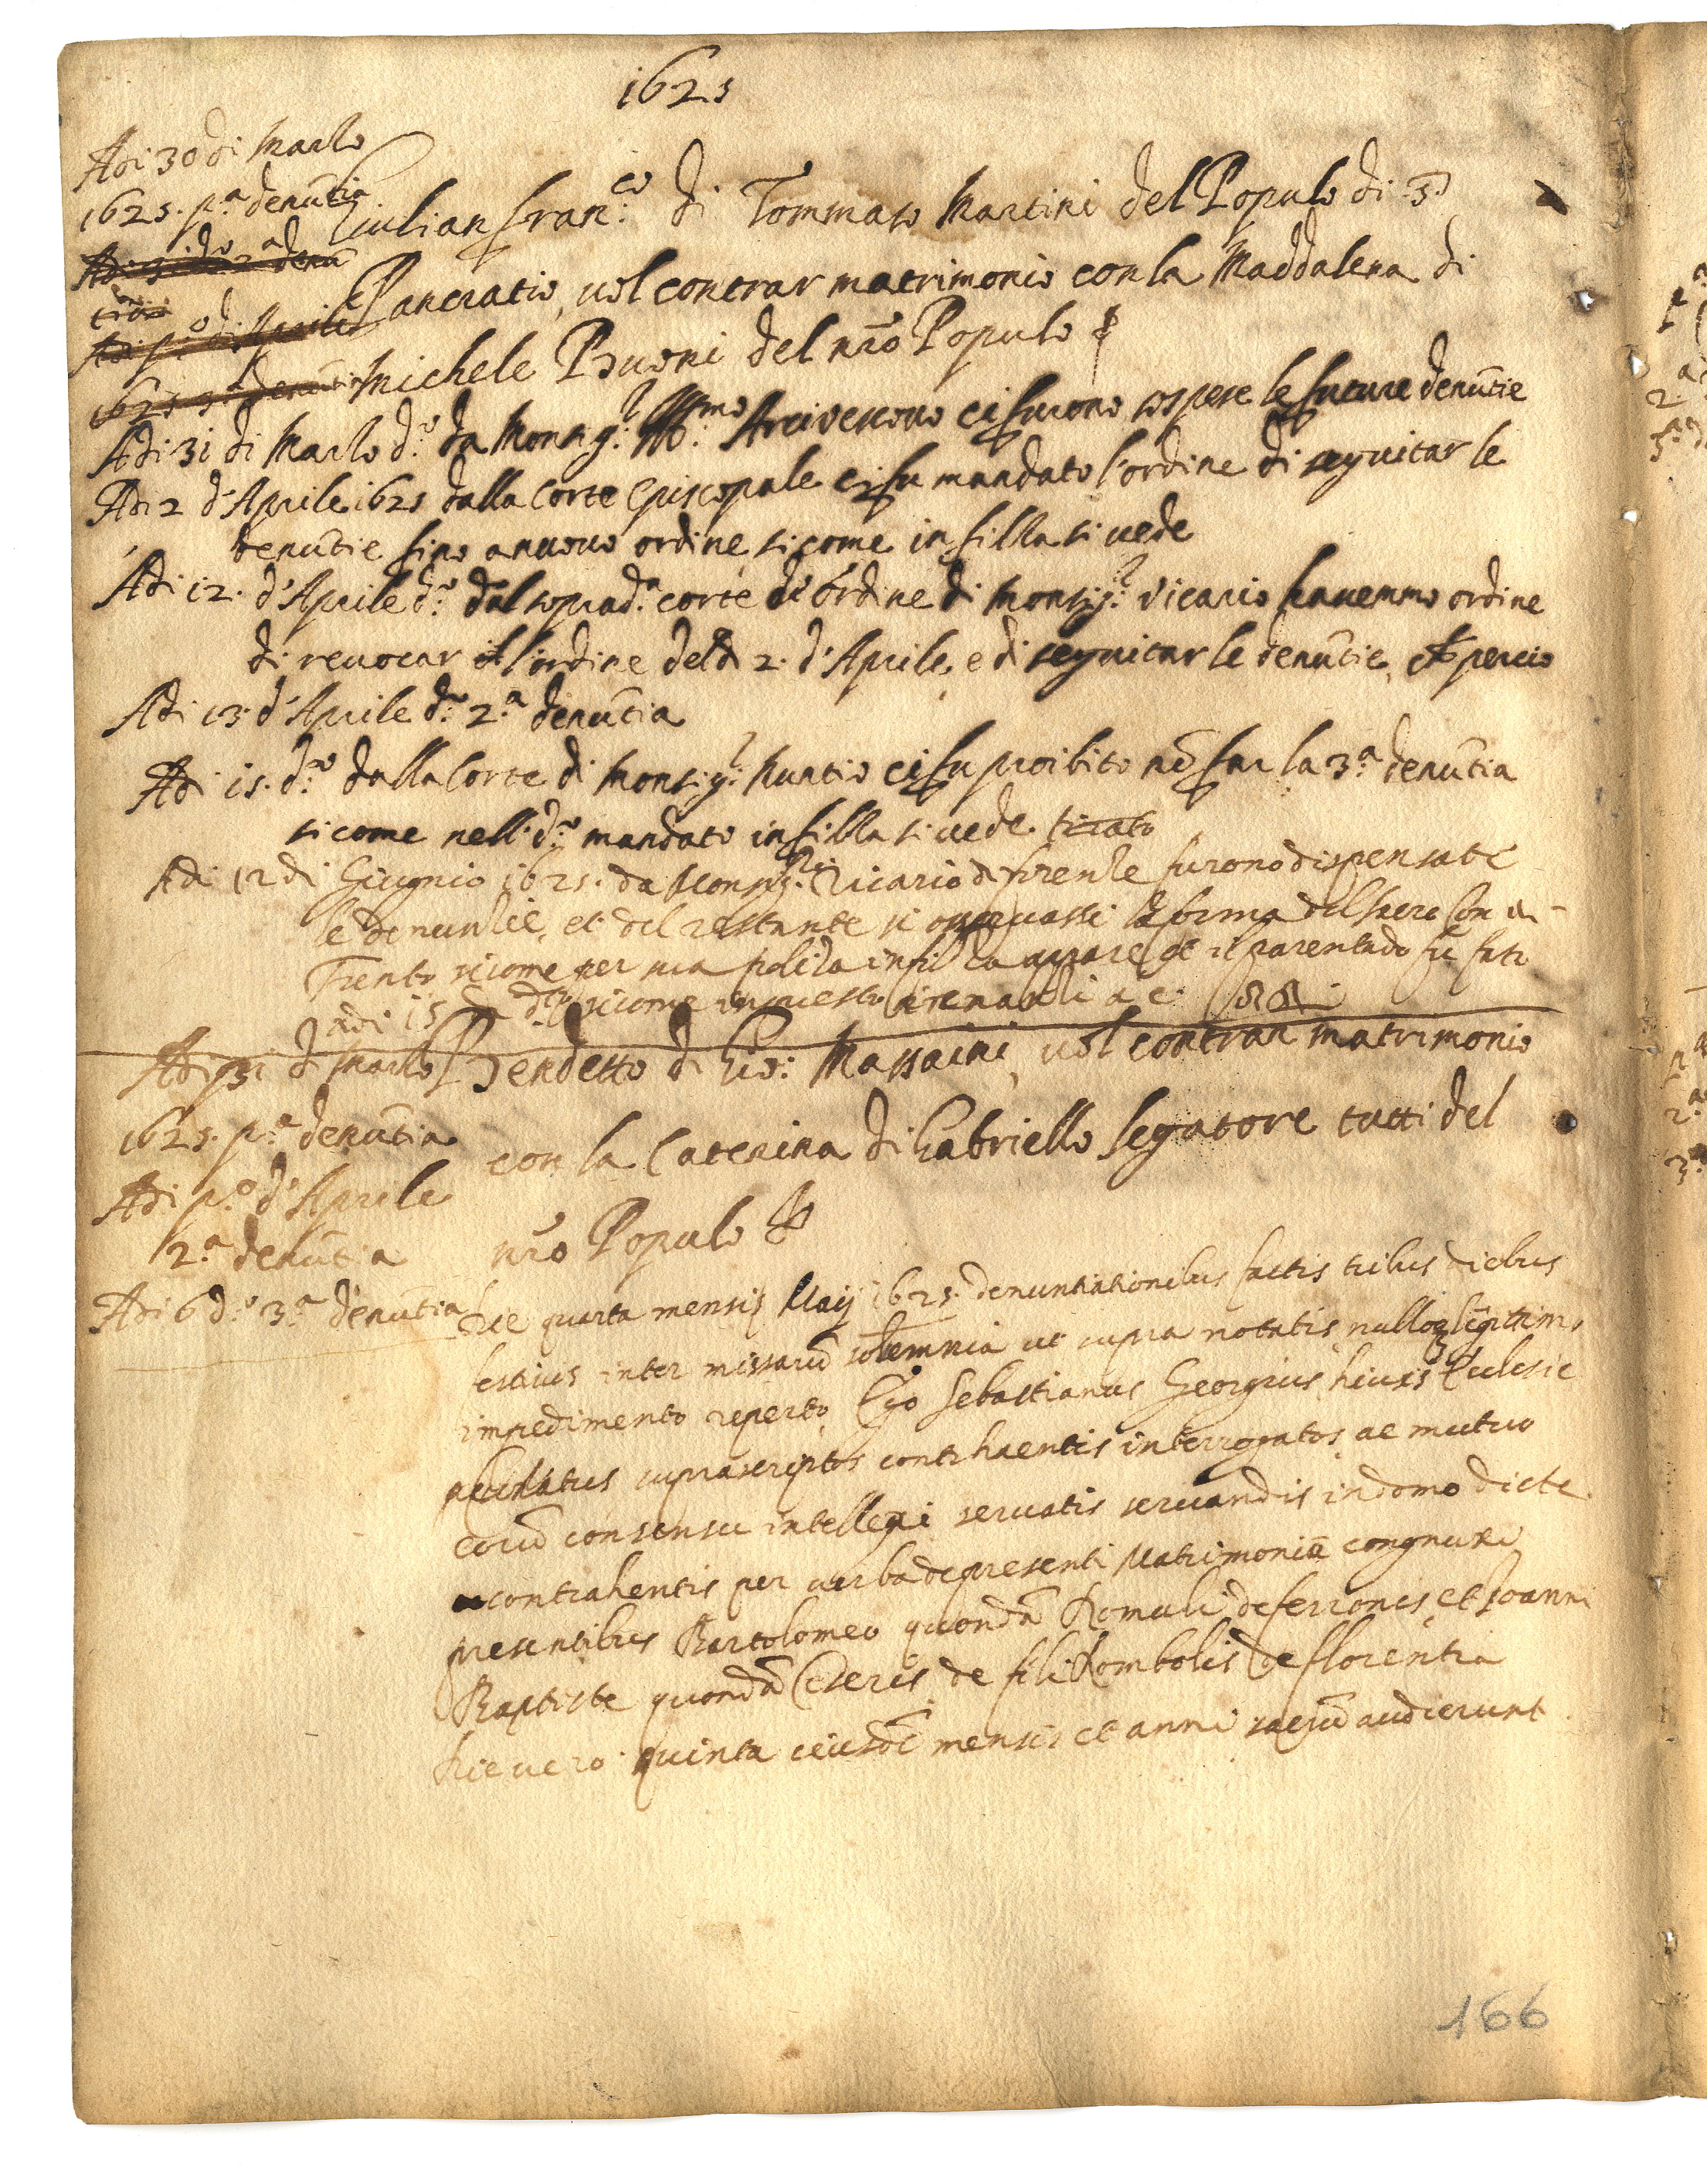 1625
Adi 30 di Marzo
1625. p.a denūtia
Adi 31 d.o 2.a denū
tia
Adi p.o di Aprile
1625 3.a denūtia
Giulian Fran.co di Tommaso Martini del Populo di S.
Pancratio, vol contrar matrimonio con la Maddalena di
Michele Buoni del nrō Populo &
Adi 31 di Marzo d.o da Monsig.r Ill.mo Arcivescovo ci furono sospese le future denūtie
Adi 2 d'Aprile 1625 dalla Corte Episcopale ci fu mandato l'ordine di seguitar le
denūtie sino a nuovo ordine, si come in filza si vede
Adi 12. d'Aprile d.o dal soprad.a corte di ordine di Monsig.r Vicario havemmo ordine
di revocar il l'ordine del di 2. d'Aprile, e di seguitar le denūtie, & percio
Adi 13. d'Aprile d.o 2.a denūtia
Adi 15. d.o dalla Corte di Monsig.r Nuntio ci fu proibito nō far la 3.a denūtia
si come nell. d.o mandato in filza si vede. tirato
Adi 12 di Giugnio 1625. da Monsig.r Vicario di Firenze furono dispensate
le denunzie, et del restante si osservassi la forma del Sacro Con di
Trento sicome per una poliza in filza appare et il parentado fu fatto
adi 15 di dto sicome in questo a c. 88.
Adi 31 di Marzo
1625. p.a denūtia
Adi p.o d'Aprile
2.a denūtia
Adi 6 d.o 3.a denūtia
Bendetto di Gio: Massaini, vol contrar matrimonio
con la Caterina di Gabriello Segatore tutti del
nrō Populo &
Die quarta mensis Maij 1625. denuntiationibus factis tribus diebus
festivis inter missarū solemnia ut supra notatis nulloq legittimo
impedimento reperto, Ego Sebastianus Georgius huius Eclesie
Curatus suprascriptos contrhaentis interrogatos ac mutuo
eorū consensu intellexi servatis servandis in domo dicte
contrahentis per verba de presenti Matrimoniū congnuxi
presentibus Bartolomeo quondā Romuli de ferronis, et Joanni
Baptiste quondā Ceseris de fili Rombolis de florentia
hie vero quinta eiusdē mensis et anni sacrū audierunt
166